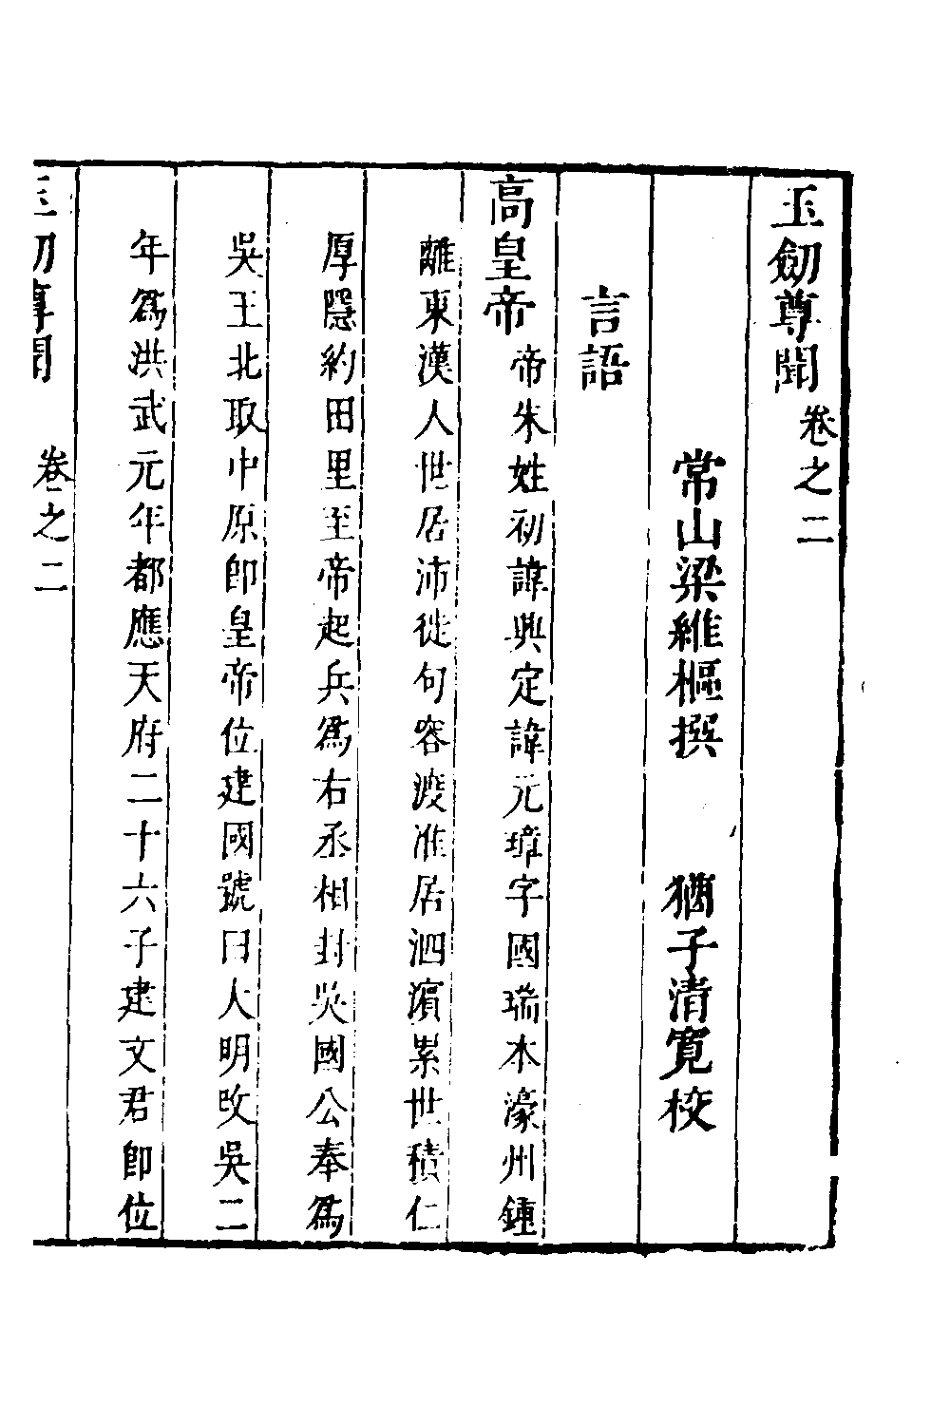 玉劒尊聞卷之二
常山梁維樞撰 猶子清寬校
言語
高皇帝帝朱姓初諱興定諱元璋字國瑞本濠州鍾
離東漢人世居沛徙句容渡淮居泗濵累世積仁
厚隱約田里至帝起兵爲右丞相封吳國公奉爲
吳王北取中原卽皇帝位建國號曰大明改吳二
年爲洪武元年都應天府二十六子建文君卽位
玉劒尊聞 卷之二